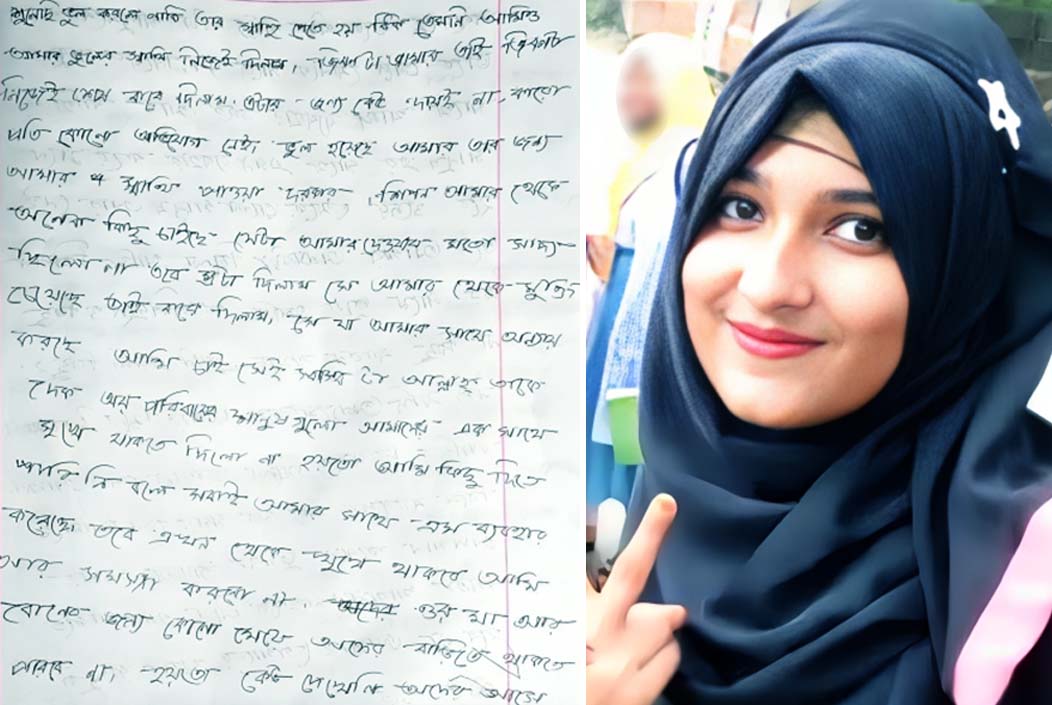 শুনেছি ভুল করলে নাকি তার শাস্তি পেতে হয় ঠিক তেমনি আমিও
আমার ভুলের শাস্তি নিজেই দিলাম, জিবন টা আমার তাই জিবনটা
নিজেই শেষ করে দিলাম, এটার জন্য কেউ দায়ই না, কারো
প্রতি কোনো অভিযোগ নেই, ভুল হয়েছে আমার তার জন্য
আমার এ শাস্তি পাওয়া দরকার, আমার থেকে
অনেক কিছু চাইছে সেটা আমার দেওয়ার মতো সাধ্য
ছিলো না তবে এটা দিলাম সে আমার থেকে মুক্তি
চেয়েছে তাই করে দিলাম, সে যা আমার সাথে অন্যায়
করছে আমি চাই সেই সবকিছু টা আল্লাহ তাকে
দেক অর পরিবারের মানুষ গুলো আমাদের এক সাথে
সুখে থাকতে দিলো না হয়তো আমি কিছু দিতে
পারি নি বলে সবাই আমার সাথে এমন ব্যবহার
করেছে তবে এখন থেকে সুখে থাকবে আমি
আর সমস্যা করবো না, ওর মা আর
বোনের জন্য কোনো মেয়ে অদের বাড়িতে থাকতে
পারবে না, হয়তো কেউ দেখেনি অদের আসে